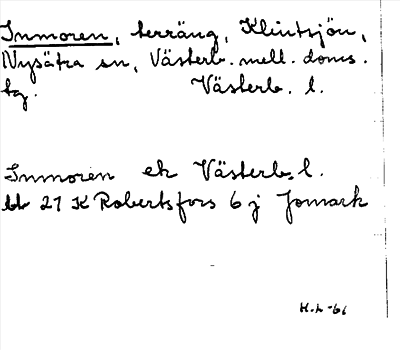 Inmoren, terräng, Klintsjön,
Nysätra sn, Västerb. mell. doms.
tg. Västerb. l.
Inmoren ek Västerb. l.
bl 21 K Robertsfors 6 j Jomark
H.L -66